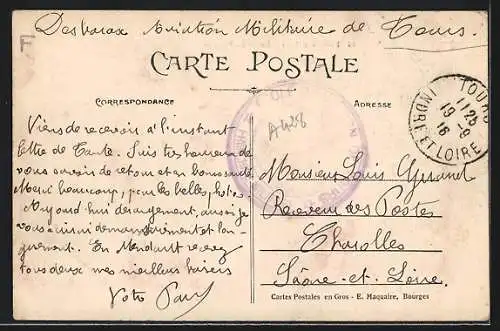 Aviation Militaire de Tours.
CARTE POSTALE
CORRESPONDANCE
ADRESSE
TOURS
11 25
19 -9
16
INDRE ET LOIRE
Viens de recevoir à l'instant
lettre de Tante. Suis très heureux de
vous savoir de retour et en bonne santé
Merci beaucoup, pour les belles photos.
Aujourd'hui dérangement, aussi je
vous
et lon-
guement. En attendant recevez
tous deux mes meilleurs baisers
Votre Paul
Monsieur Louis
Receveur des Postes
Charolles
Saône-et-Loire.
Cartes Postales en Gros - E. Maquaire, Bourges